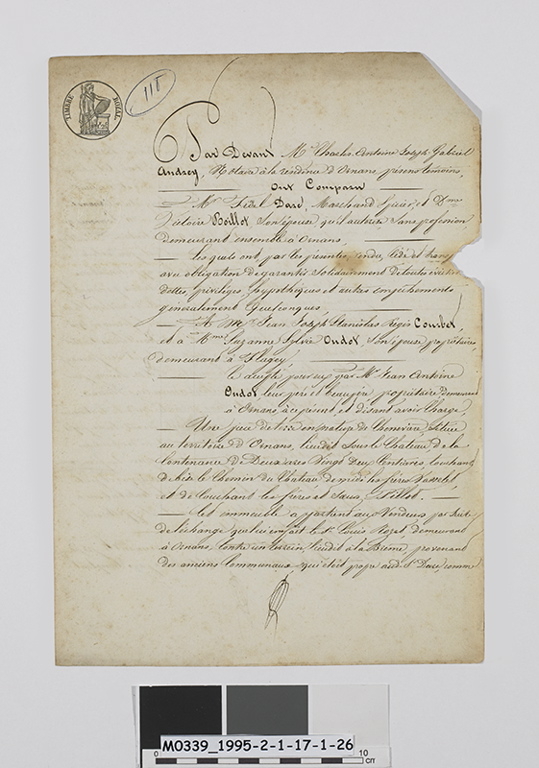 TIMBRE ROYAL
118
Par Devant Me Charles Antoine Joseph Gabriel
Andrey, Notaire à la résidence d'Ornans, présens témoins,
Ont Comparu
M. Fidel Dare, Marchand épicier, et Dme
Victoire Boillot son épouse qu'il autorise sans profession
demeurant ensemble à Ornans,
Lesquels ont par les présentes, vendu, cédé et transp
avec obligation de garantir solidairement de toutes évictions
dettes, privilèges, hypothèques et autres empêchements
généralement quelconques,
A M. Jean Joseph Stanislas Régis Courbet,
et à Mme Suzanne Sylvie Oudot, son épouse propriétaires
demeurant à Flagey
ce accepté pour eux par M. Jean Antoine
Oudot, leur père et beau père, propriétaire demeurant
à Ornans, à ce présent, et disant avoir charge,
Une pièce de terre en nature de Chenevière, située
au territoire d'Ornans, lieudit Sous le Chateau de la
Contenance de Deux ares Vingt Deux Centiares, touchant
de bise le Chemin du Chateau de midi les frères
et de Couchant les frères et Sœurs Fillot.
Cet immeuble appartient aux Vendeurs par suite
de l'échange que lui en fait le Sr Louis demeurant
à Ornans, contre un terrein, lieudit à la provenant
des anciens Communaux qui étoit propre audit Sr Dare, comme
M0339_1995-2-1-17-1-26
0 10
cm